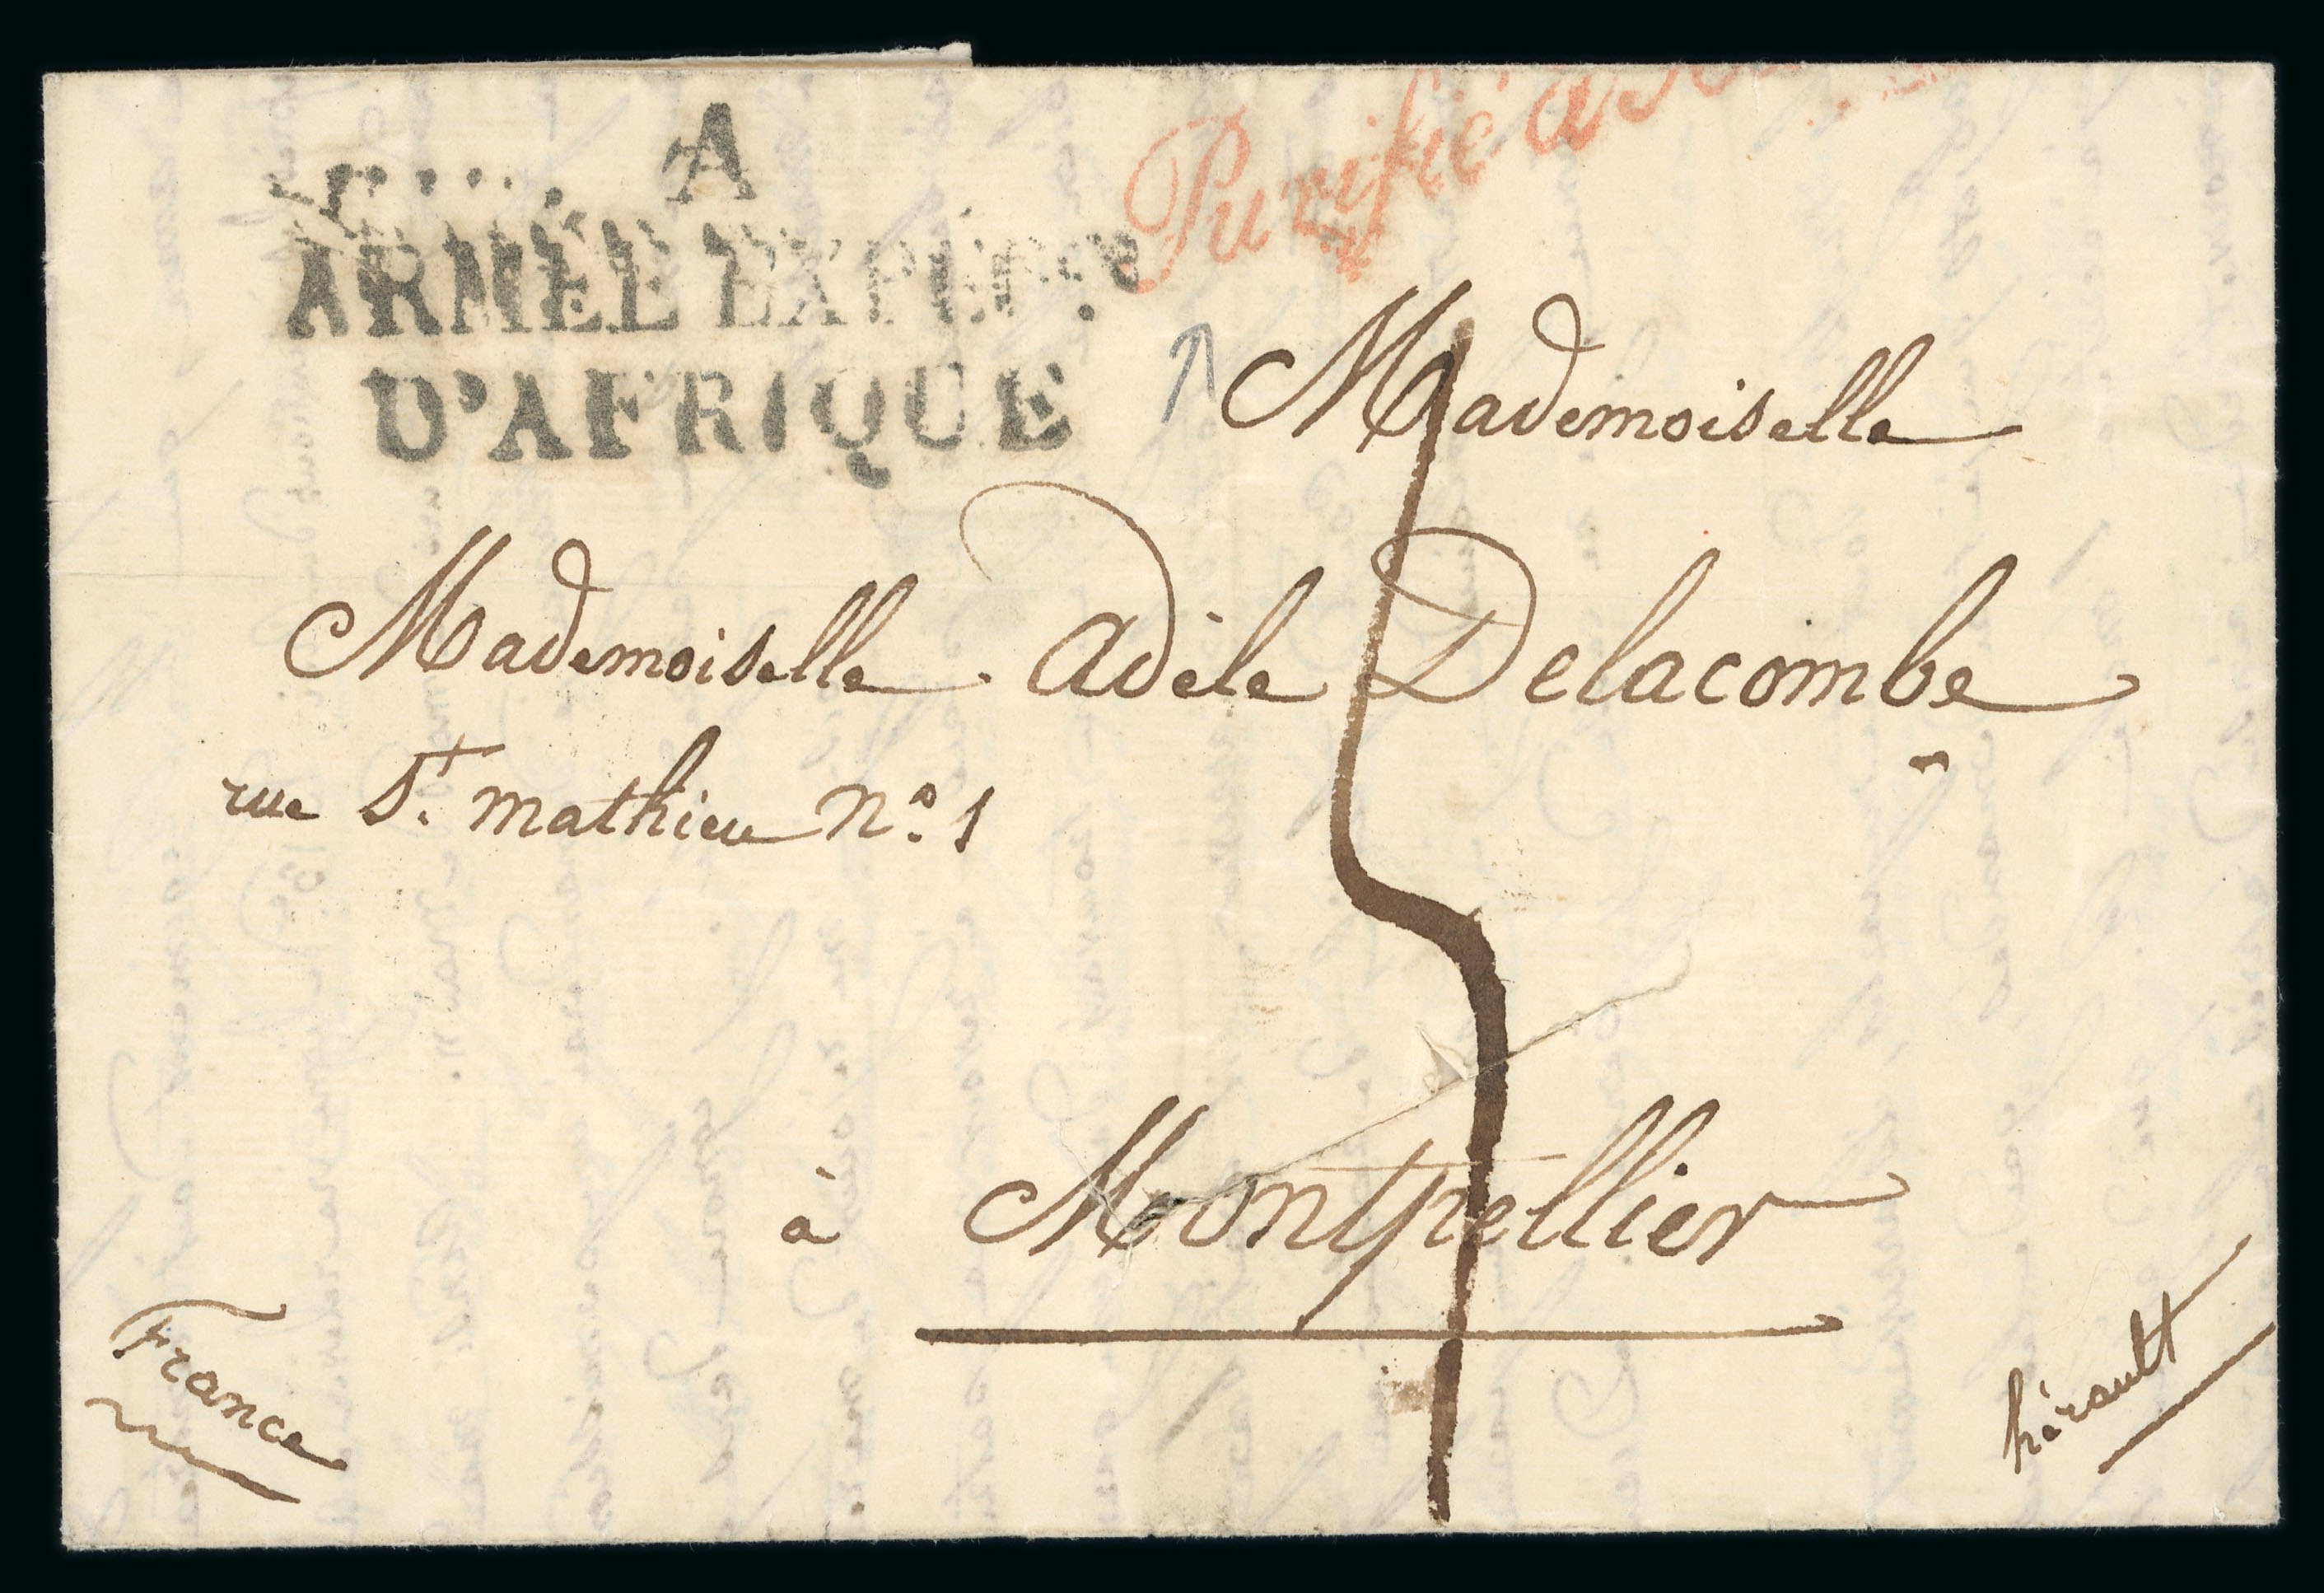 A
ARMÉE EXPÉD.re
D'AFRIQUE
Purifié à
Mademoiselle
Mademoiselle Adèle Delacombe
rue St. mathieu N° 1
à Montpellier
France
hérault